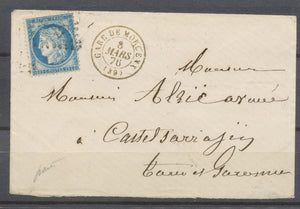 GARE DE MORCENX
8
MARS
76
(39)
Monsieur
Monsieur Alric avoué
à Castelsarrazin
Tarn et Garonne